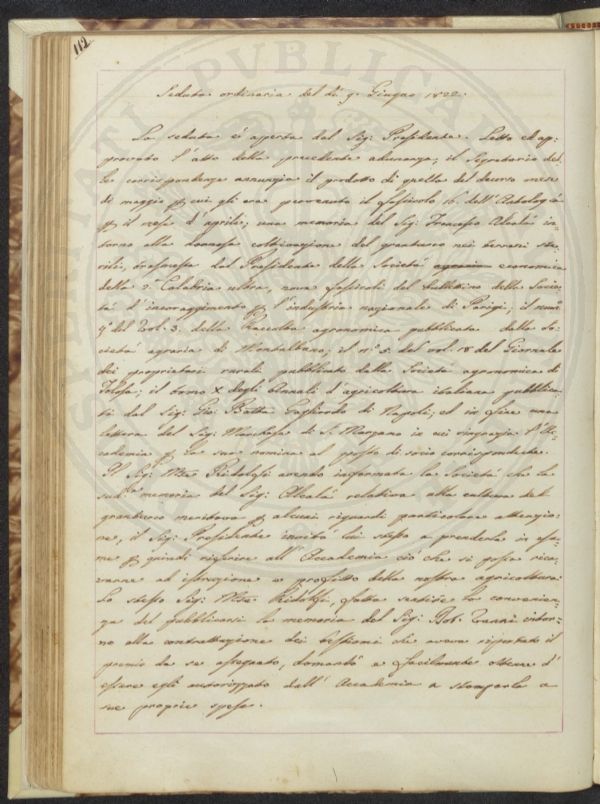 112
Seduta ordinaria del dì 9. Giugno 1822.
La seduta é aperta dal Sig: Presidente. Letto ed ap:
provato l'atto della precedente adunanza, il Segretario del:
le corrispondenze annunzia il prodotto di quella del decorso mese
di maggio p cui gli era pervenuto il fascicolo 16. dell'Antologia
p il mese d'aprile; una memoria del Sig: Francesco Alcalá in:
torno alla dannosa coltivazione del granturco nei terreni ste:
rili, trasmessa dal Presidente della Società economica
della 2ª Calabria ultra, nove fascicoli del bullettino della Socie:
tà d'incoraggimento p l'industria nazionale di Parigi; il num:
9 del Vol. 3. della Raccolta agronomica pubblicata dalla So:
cietà agraria di Montalbano; il nº 5. del vol. 18 del Giornale
dei proprietari rurali pubblicato dalla Società agronomica di
Tolosa; il tomo X degli Annali d'agricoltura italiana pubblica:
ti dal Sig: Gio: Batta Gagliardo di Napoli, ed in fine una
lettera del Sig: Marchese di S. Marzano in cui ringrazia l'Ac:
cademia p la sua nomina al posto di socio corrispondente.
Il Sig: Mse Ridolfi avendo informata la Società che la
sudª memoria del Sig: Alcalá relativa alla cultura del
granturco meritava p alcuni riguardi particolare attenzio:
ne, il Sig: Presidente invitò lui stesso a prenderla in esa:
me p quindi riferire all'Accademia ciò che si possa rica:
varne ad istruzione e profitto della nostra agricoltura.
Lo stesso Sig: Mse Ridolfi, fatta sentire la convenien:
za del pubblicarsi la memoria del Sig: intor:
no alla contrattazione dei bestiami che aveva riportato il
premio da se assegnato, domandò e facilmente ottenne d'
essere egli autorizzato dall'Accademia a stamparla a
sue proprie spese.